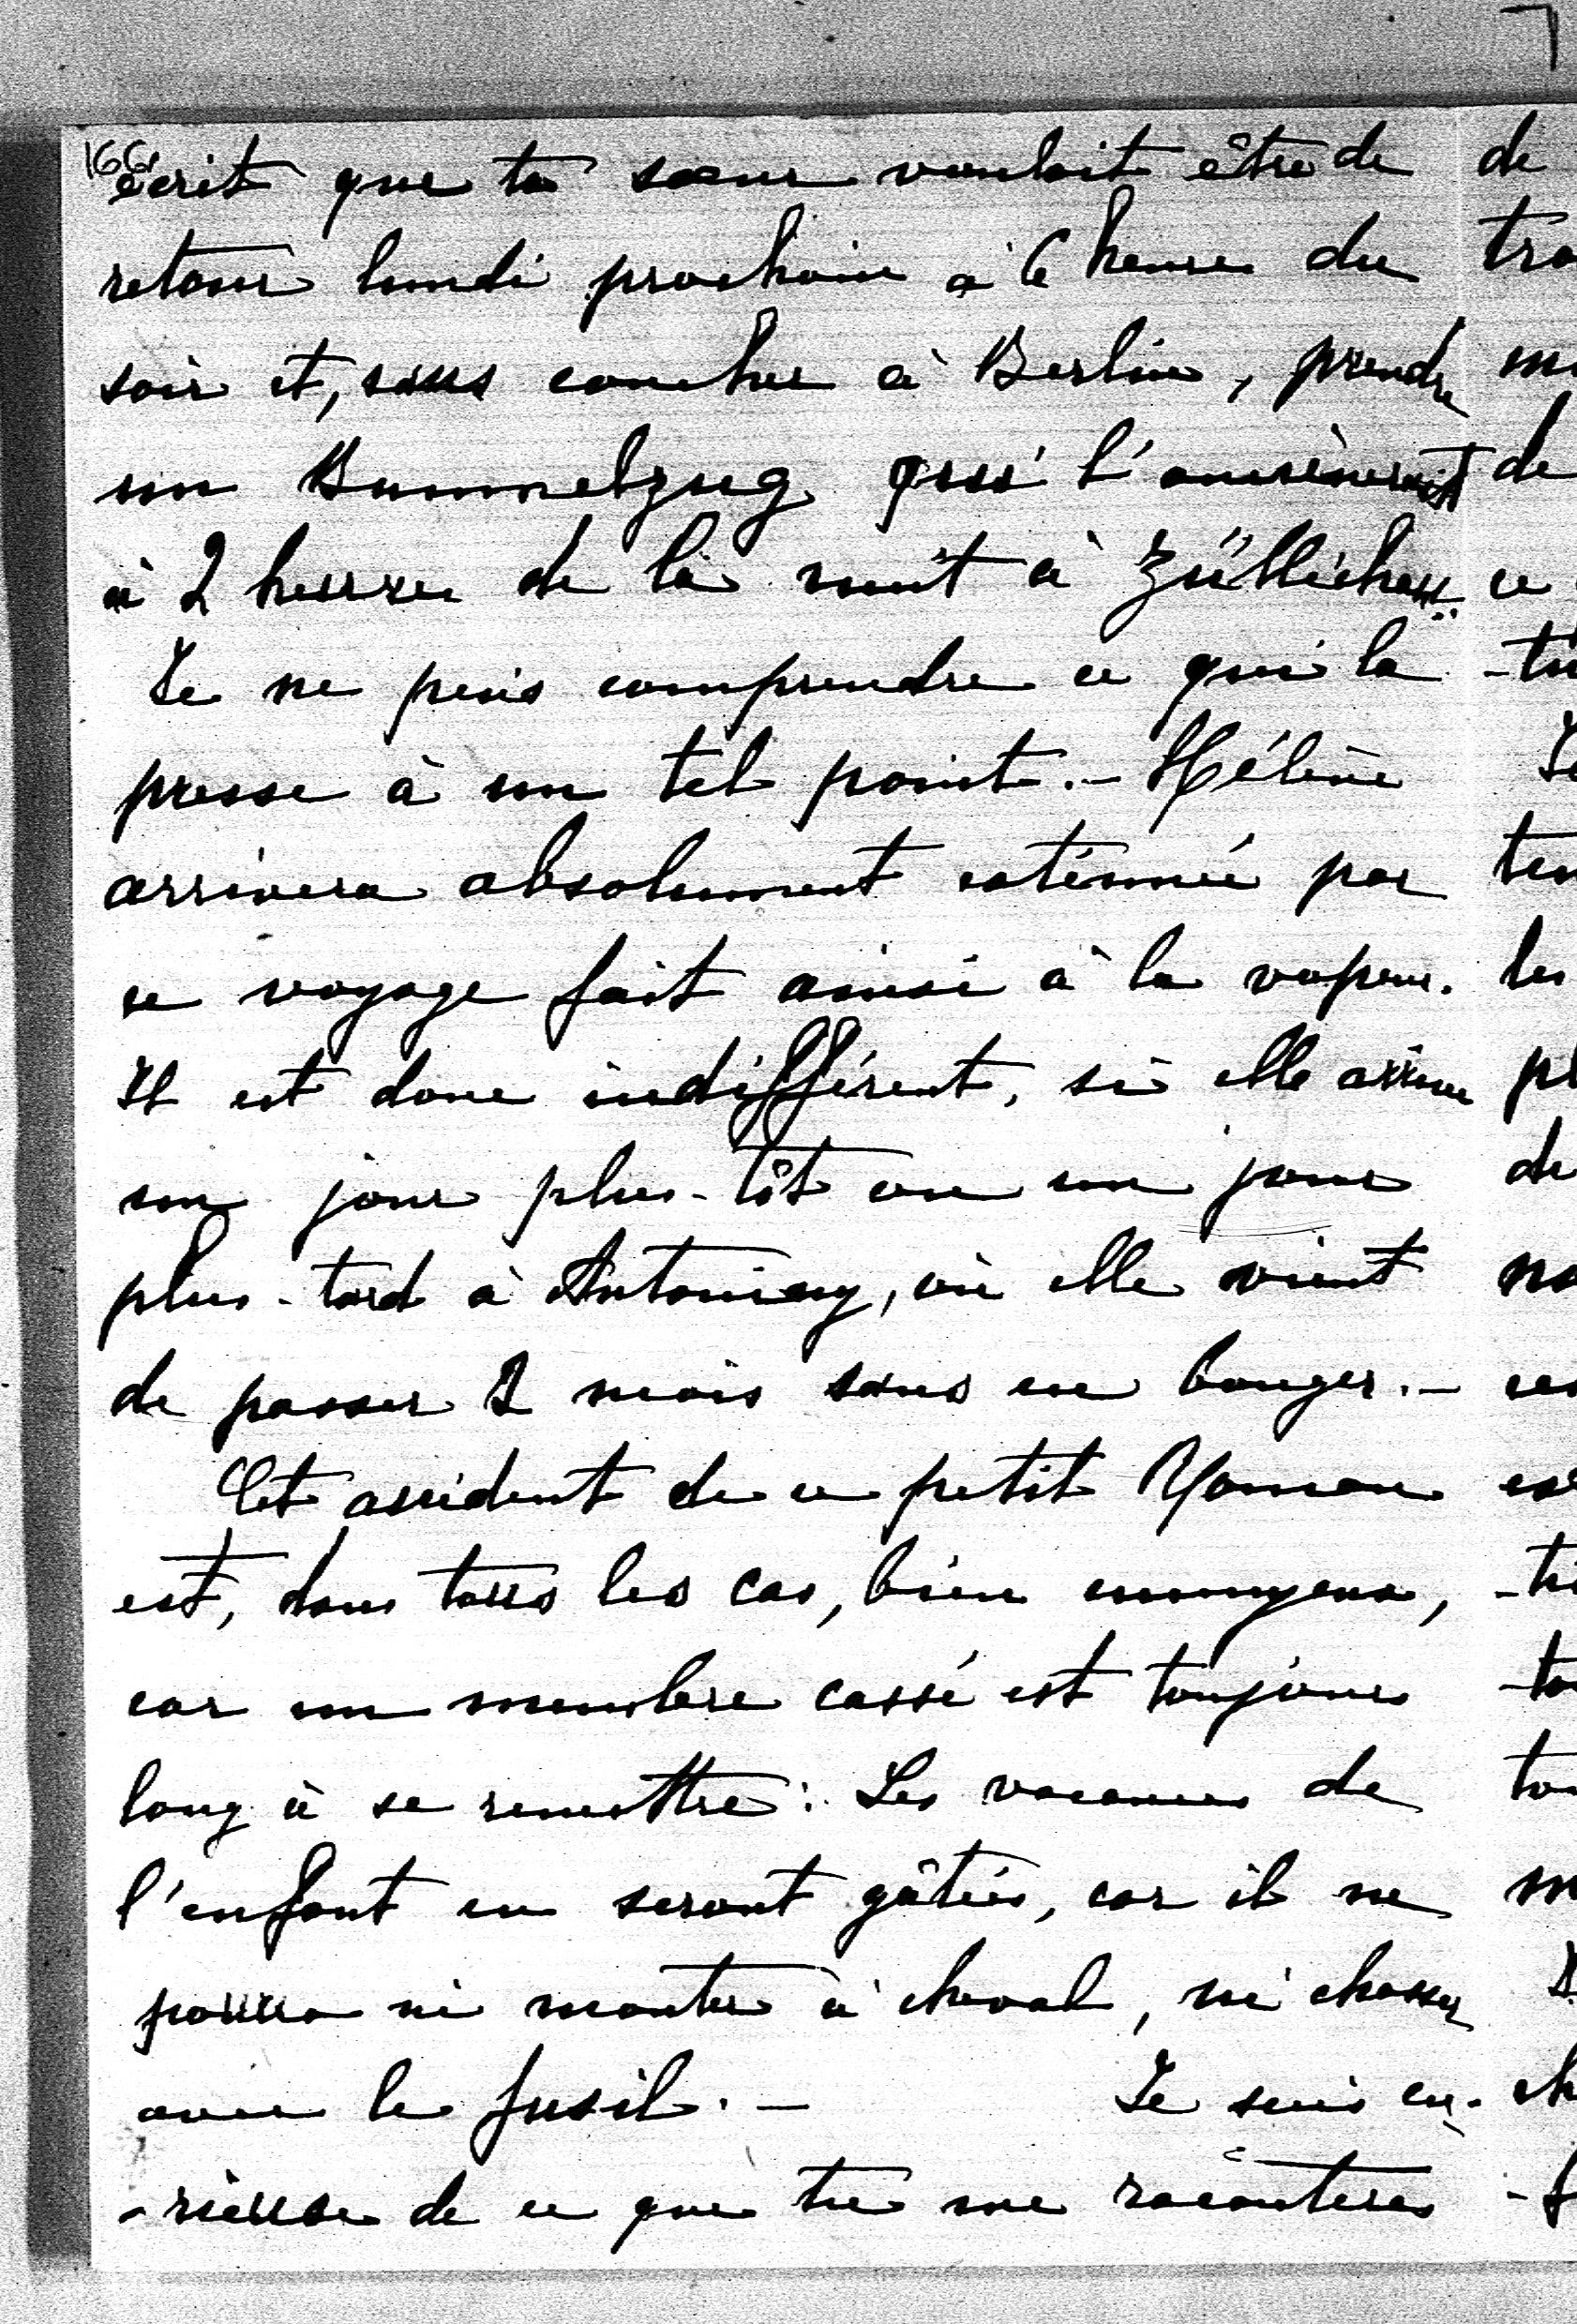 166
écrit que ta sœur voulait être de
retour lundi prochain à 6 heures du
soir et, sans coucher à Berlin, prendre
un Bummelzug qui l'amènerait
à 2 heures de la nuit à Züllichau..
Je ne puis comprendre ce qui la
presse à un tel point. - Hélène
arrivera absolument exténuée par
ce voyage fait ainsi à la vapeur.
Il est donc indifférent, si elle arrive
un jour plus-tôt ou un jour
plus-tard à Antoniny, où elle vient
de passer 2 mois sans en bouger. -
Cet accident de ce petit
est, dans tous les cas, bien ennuyeux,
car un membre cassé est toujours
long à se remettre: Les vacances de
l'enfant en seront gâtées, car il ne
pourra ni monter à cheval, ni chasser
avec le fusil. - Je suis cu-
-rieuse de ce que tu me raconteras